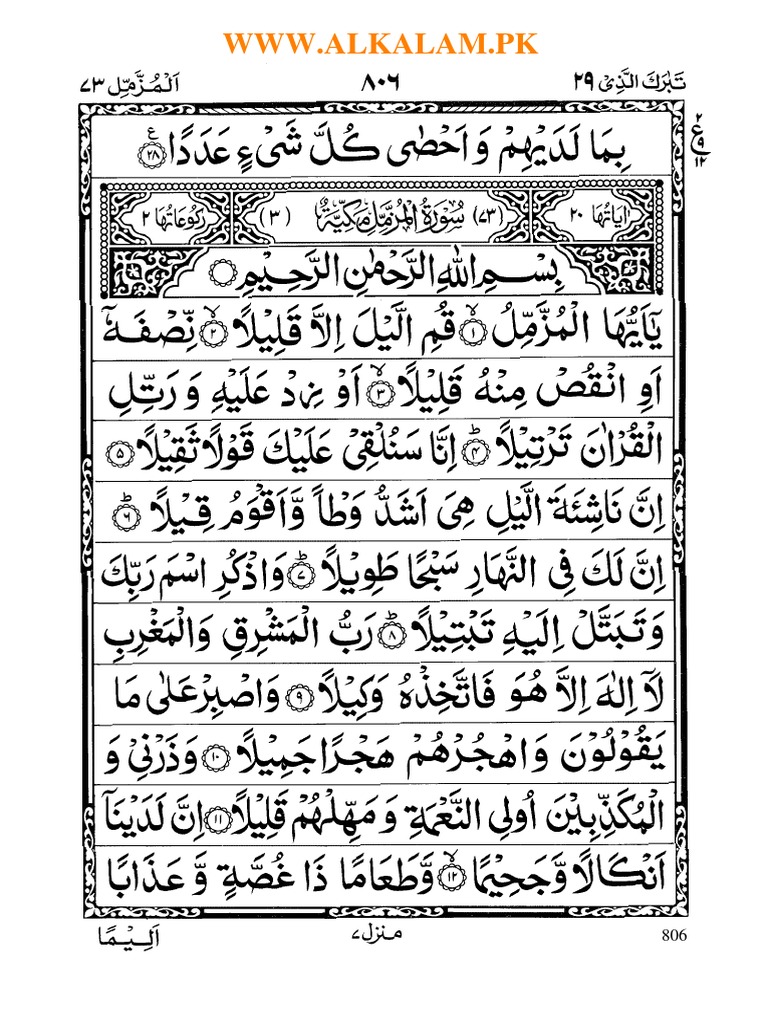 WWW.ALKALAM.PK
تَبٰرَكَ الَّذِیْ ۲۹
۸۰۶
اَلْمُزَّمِّل ۷۳
۲
ع
۹
۱۲
بِمَا لَدَیْهِمْ وَ اَحْصٰی كُلَّ شَیْءٍ عَدَدًا ﴿۲۸﴾ ع
اٰیَاتُهَا ۲۰
(۷۳) سُوْرَةُ الْمُزَّمِّلِ مَكِّیَّةٌ (۳)
رُكُوْعَاتُهَا ۲
بِسْمِ اللّٰهِ الرَّحْمٰنِ الرَّحِیْمِ
یٰۤاَیُّهَا الْمُزَّمِّلُ ﴿۱﴾ۙ قُمِ الَّیْلَ اِلَّا قَلِیْلًا ﴿۲﴾ۙ نِّصْفَهٗۤ
اَوِ انْقُصْ مِنْهُ قَلِیْلًا ﴿۳﴾ۙ اَوْ زِدْ عَلَیْهِ وَ رَتِّلِ
الْقُرْاٰنَ تَرْتِیْلًا ﴿۴﴾ؕ اِنَّا سَنُلْقِیْ عَلَیْكَ قَوْلًا ثَقِیْلًا ﴿۵﴾
اِنَّ نَاشِئَةَ الَّیْلِ هِیَ اَشَدُّ وَطْاً وَّ اَقْوَمُ قِیْلًا ﴿۶﴾ؕ
اِنَّ لَكَ فِی النَّهَارِ سَبْحًا طَوِیْلًا ﴿۷﴾ؕ وَ اذْكُرِ اسْمَ رَبِّكَ
وَ تَبَتَّلْ اِلَیْهِ تَبْتِیْلًا ﴿۸﴾ؕ رَبُّ الْمَشْرِقِ وَ الْمَغْرِبِ
لَاۤ اِلٰهَ اِلَّا هُوَ فَاتَّخِذْهُ وَكِیْلًا ﴿۹﴾ وَ اصْبِرْ عَلٰی مَا
یَقُوْلُوْنَ وَ اهْجُرْهُمْ هَجْرًا جَمِیْلًا ﴿۱۰﴾ وَ ذَرْنِیْ وَ
الْمُكَذِّبِیْنَ اُولِی النَّعْمَةِ وَ مَهِّلْهُمْ قَلِیْلًا ﴿۱۱﴾ اِنَّ لَدَیْنَاۤ
اَنْكَالًا وَّ جَحِیْمًا ﴿۱۲﴾ۙ وَّ طَعَامًا ذَا غُصَّةٍ وَّ عَذَابًا
اَلِیْمًا
منزل ۷
806